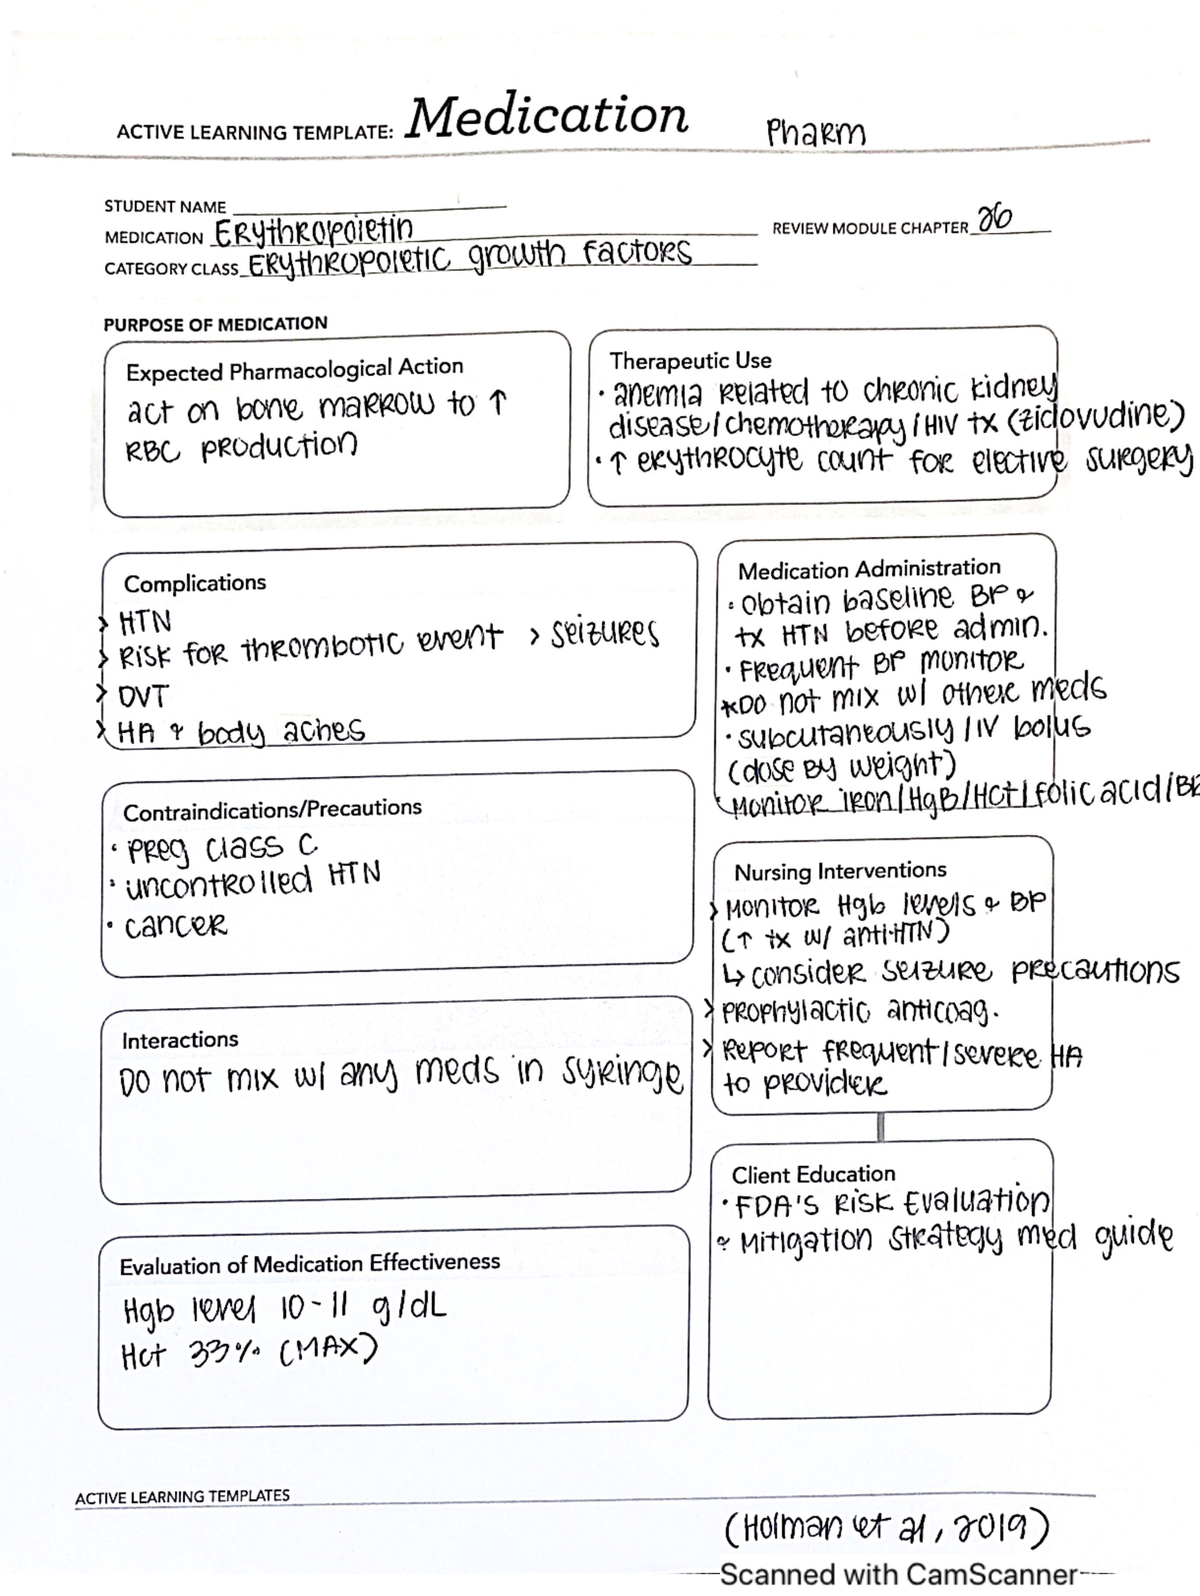 ACTIVE LEARNING TEMPLATE: Medication Pharm
STUDENT NAME
MEDICATION Erythropoietin
REVIEW MODULE CHAPTER 26
CATEGORY CLASS Erythropoietic growth factors
PURPOSE OF MEDICATION
Expected Pharmacological Action
act on bone marrow to ↑
RBC production
Therapeutic Use
· anemia related to chronic kidney
disease/chemotherapy/HIV tx (zidovudine)
· ↑ erythrocyte count for elective surgery
Complications
> HTN
> Risk for thrombotic event > seizures
> DVT
> HA & body aches
Medication Administration
· Obtain baseline BP &
tx HTN before admin.
· Frequent BP monitor
*Do not mix w/ other meds
· subcutaneously/IV bolus
(dose by weight)
· Monitor iron/HgB/Hct/folic acid/
Contraindications/Precautions
· Preg class C
· uncontrolled HTN
· cancer
Nursing Interventions
> Monitor Hgb levels & BP
(↑ tx w/ anti-HTN)
↳ consider seizure precautions
> prophylactic anticoag.
> Report frequent/severe HA
to provider
Interactions
Do not mix w/ any meds in syringe
Client Education
· FDA's Risk Evaluation
& Mitigation strategy med guide
Evaluation of Medication Effectiveness
Hgb level 10-11 g/dL
Hct 33% (MAX)
ACTIVE LEARNING TEMPLATES
(Holman et al, 2019)
Scanned with CamScanner